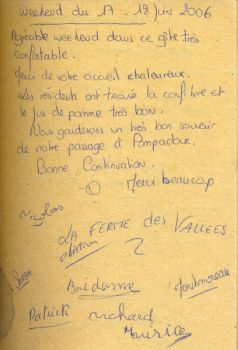 Weekend du 17 - 18 Juin 2006
Agréable weekend dans ce gîte très
confortable.
Merci de votre accueil chaleureux.
Les résidents ont trouvé la confiture et
le jus de pomme très bon.
Nous garderons un très bon souvenir
de notre passage à Pompadour.
Bonne Continuation.
Merci beaucoup
Nicolas
LA FERME des VALLEES
Bridonne
Patrick
richard
Maurice